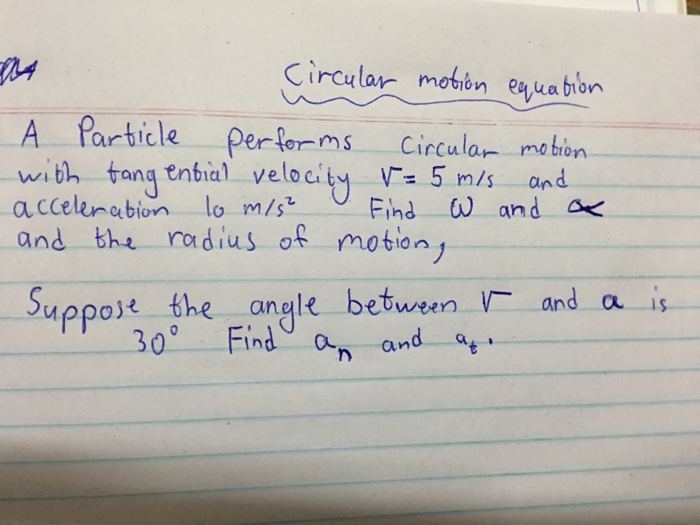 Circular motion equation
A Particle performs Circular motion
with tangential velocity V = 5 m/s and
acceleration 10 m/s² Find ω and α
and the radius of motion,
Suppose the angle between V and a is
30° Find aₙ and aₜ.